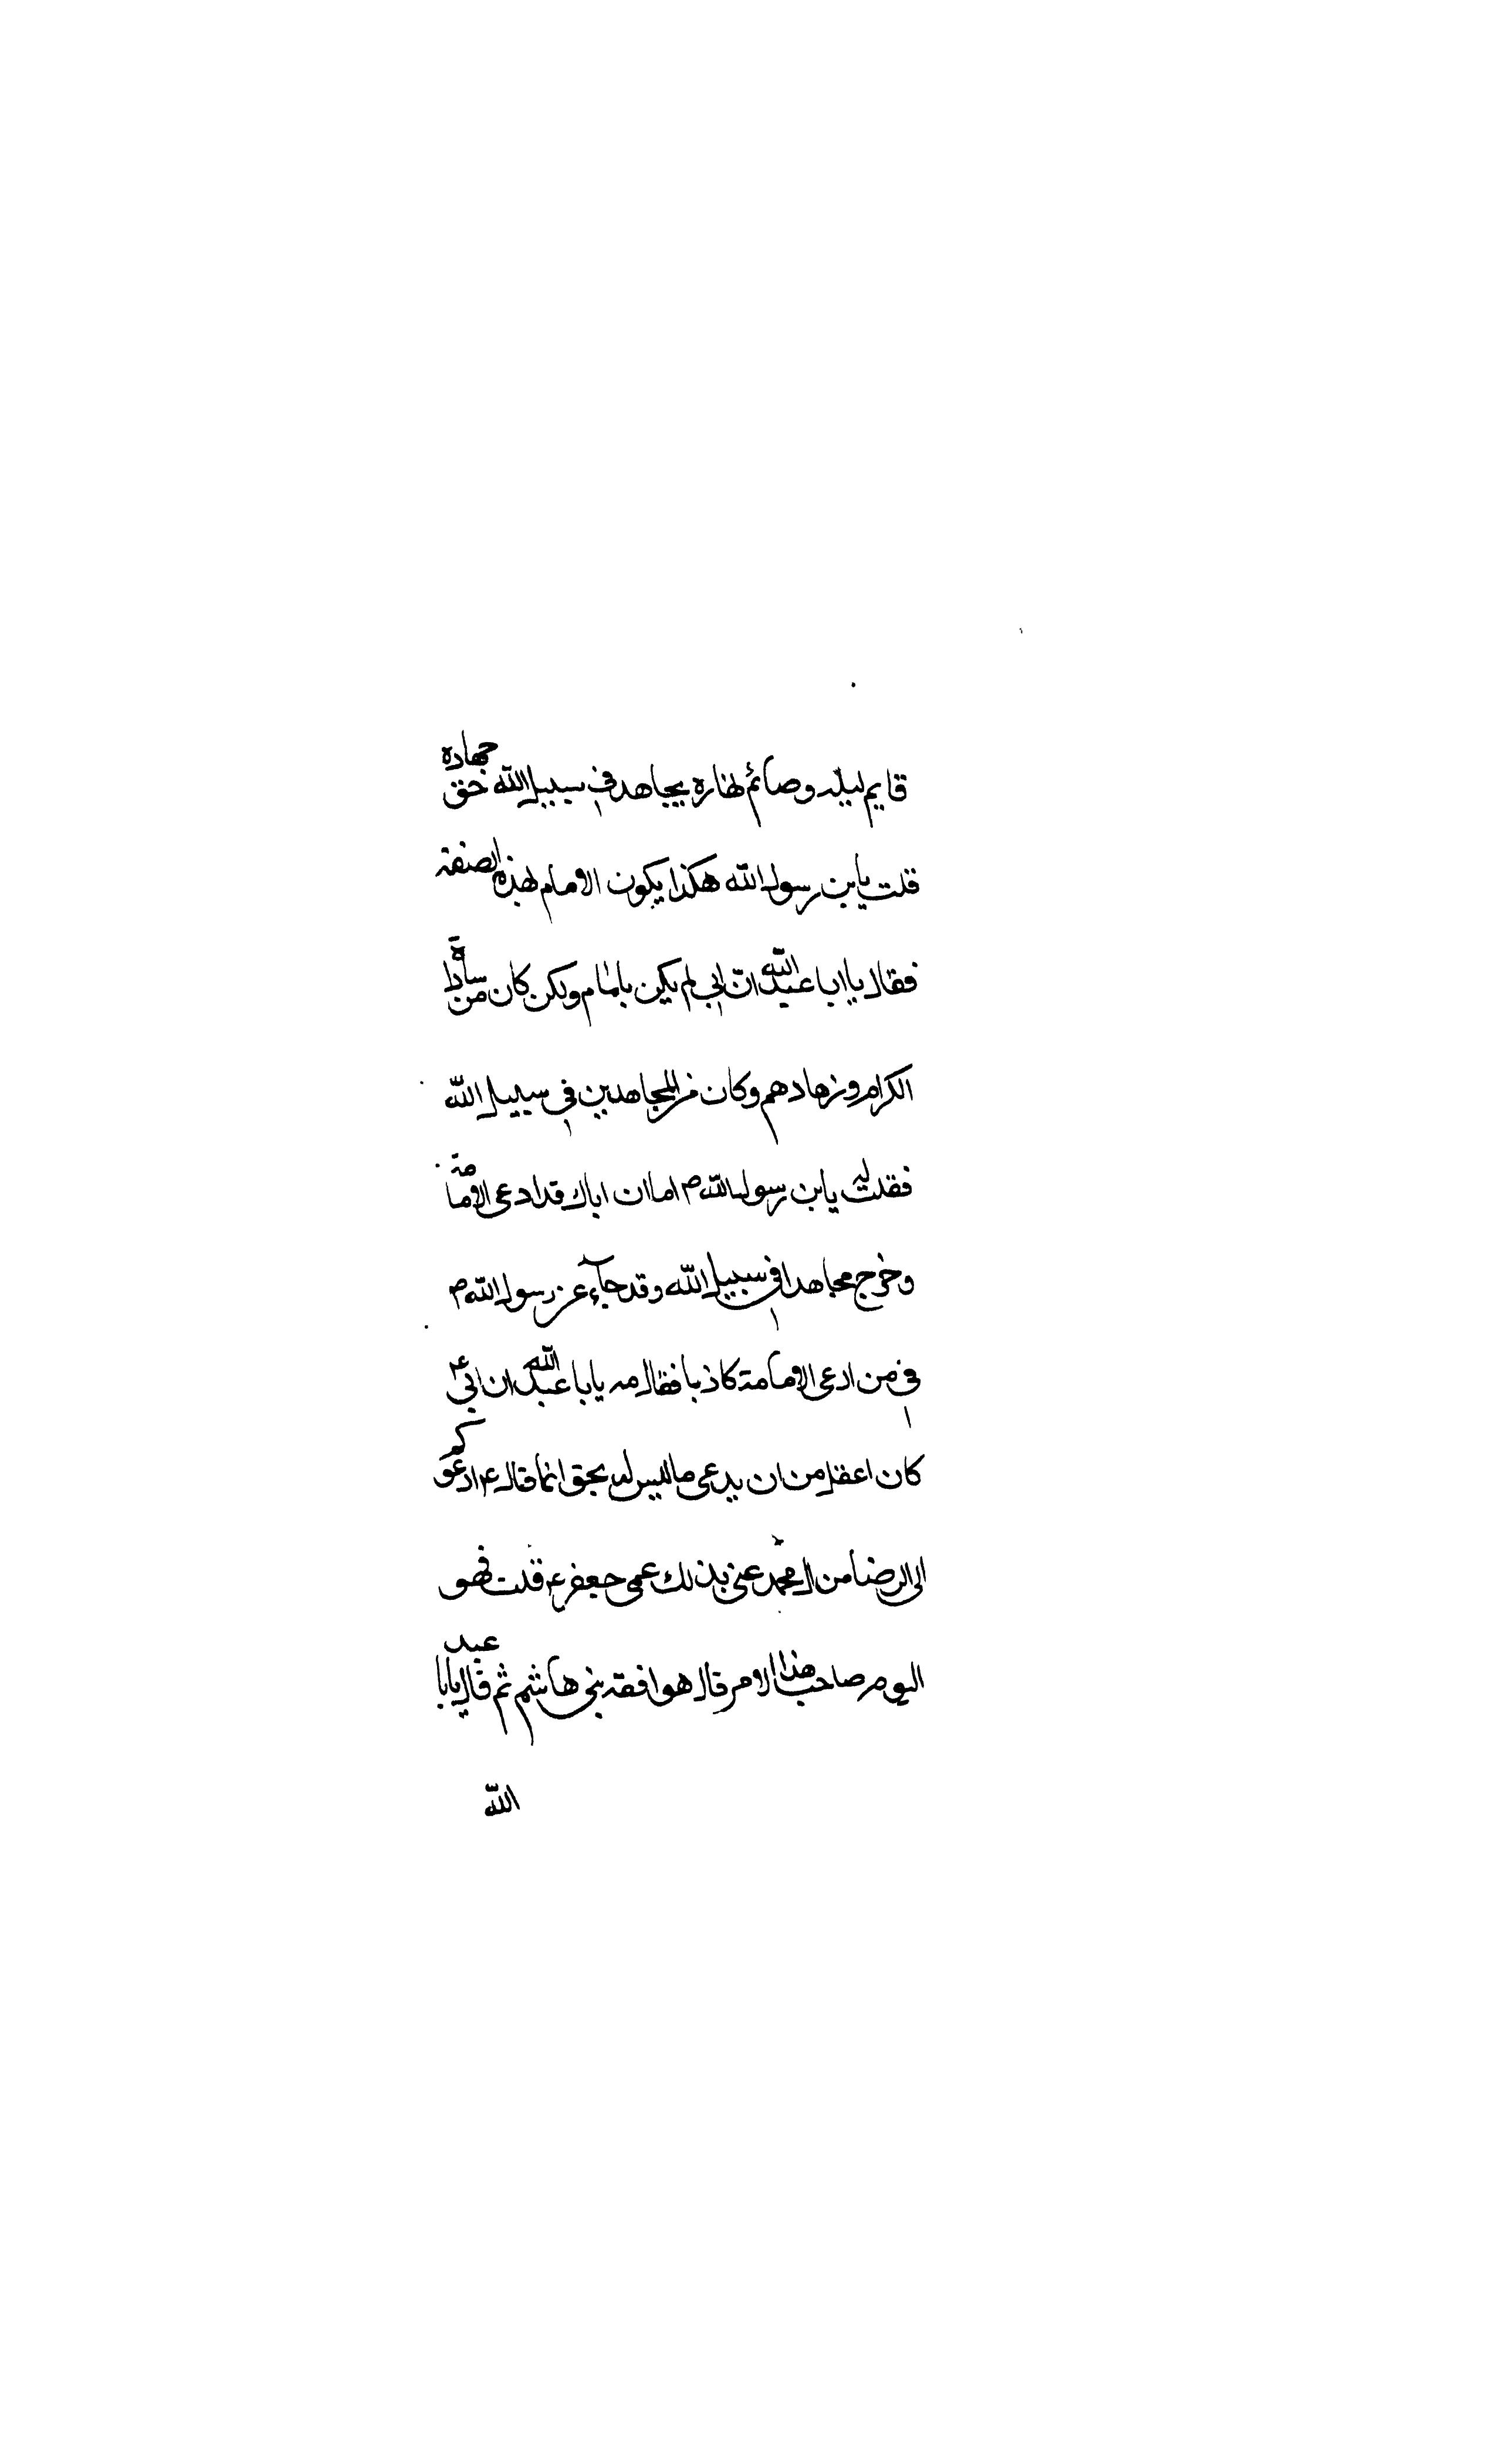 قايم ليله وصائم نهاره يجاهد في سبيل الله حق جهاده
قلت يابن رسول الله هكذا يكون الامام بهذه الصفة
فقال يا ابا عبد الله ان ابي لم يكن بامام ولكن كان من سادة
الكرام وزهادهم وكان من المجاهدين في سبيل الله
فقلت له يابن رسول الله ص اما ان اباك قد ادعى الامامة
وخرج مجاهدا في سبيل الله وقد جآء عن رسول الله ص
في من ادعى الامامة كاذبا فقال مه يابا عبد الله ان ابي ع
كان اعقل من ان يدعى ما ليس له بحق انما قال ع ادعوكم
الى الرضا من ال محمد عنى بذلك عمى جعفر ع قلت فهو
اليوم صاحب هذا الامر قال هو افقه بنى هاشم ثم قال يابا عبد
الله